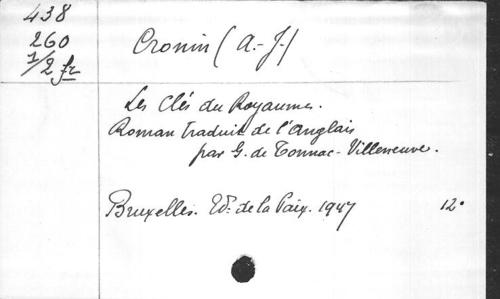 438
260
1/2 fr
Cronin (A.-J.)
Les Clés du Royaume.
Roman traduit de l'Anglais
par G. de Tonnac-Villeneuve.
Bruxelles. Ed. de la Paix. 1947 12°